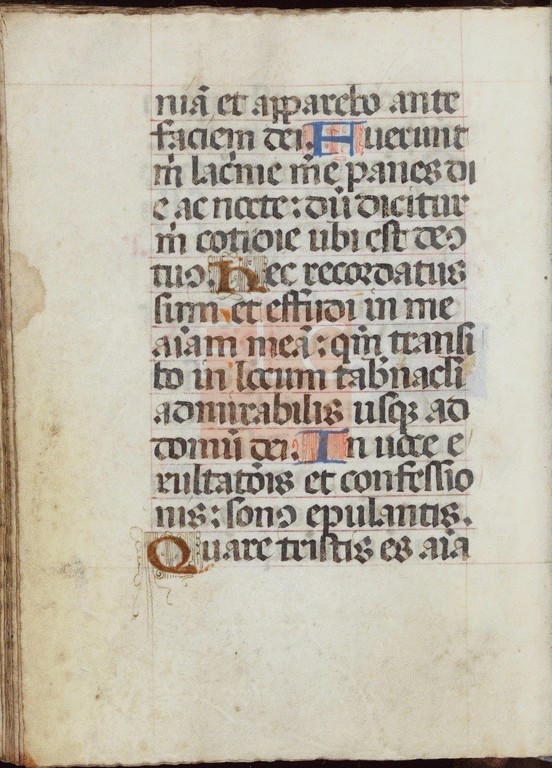 niā et apparebo ante
faciem dei. Fuerunt
m̄ lac̄me mē panes di
e ac nocte: dū dicitur
m̄ cotidie ubi est deꝯ
tuꝯ. hec recordatus
sum et effudi in me
aīam meā: qm̄ transi
bo in locum tab̄nacli
admirabilis usqꝫ ad
domū dei. In uoce e
xultatōis et confessio
nis: sonꝯ epulantis.
Quare tristis es aīa